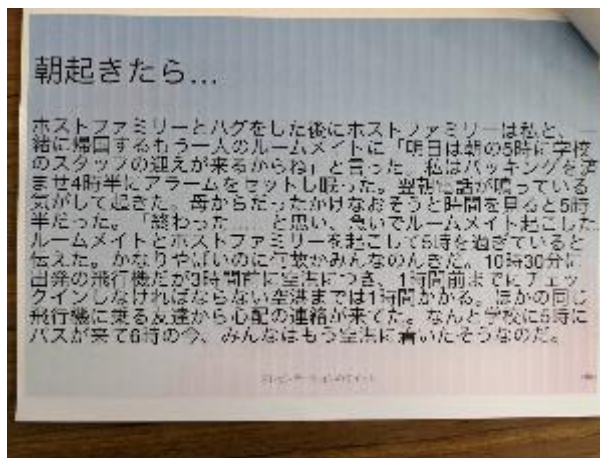 朝起きたら…
ホストファミリーとハグをした後にホストファミリーは私と、一
緒に帰国するもう一人のルームメイトに「明日は朝の5時に学校
のスタッフの迎えが来るからね」と言った。私はパッキングを済
ませ4時半にアラームをセットし眠った。翌朝電話が鳴っている
気がして起きた。母からだったかけなおそうと時間を見ると5時
半だった。「終わった……と思い、急いでルームメイト起こした
ルームメイトとホストファミリーを起こして5時を過ぎていると
伝えた。かなりやばいのに何故かみんなのんきだ。10時30分に
出発の飛行機だが3時間前に空港につき、1時間前までにチェッ
クインしなければならない空港までは1時間かかる。ほかの同じ
飛行機に乗る友達から心配の連絡が来てた。なんと学校に5時に
バスが来て6時の今、みんなはもう空港に着いたそうなのだ。